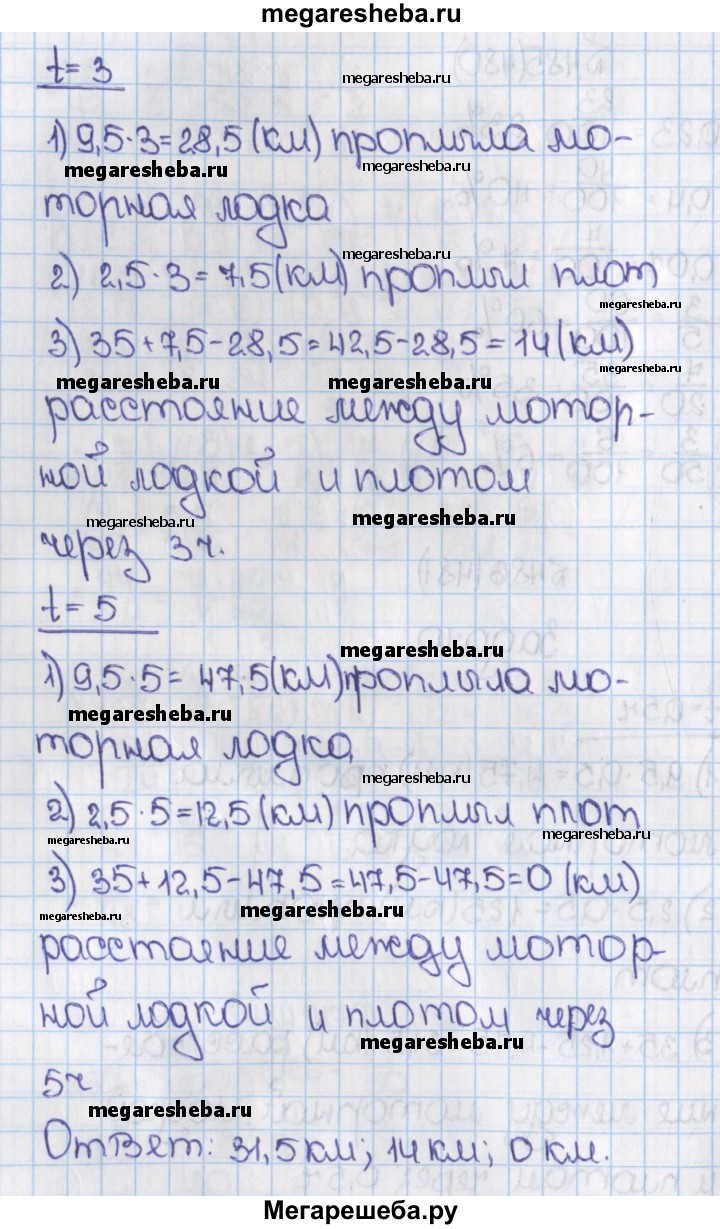 megaresheba.ru
t = 3
megaresheba.ru
1) 9,5·3=28,5 (км) проплыла мо-
megaresheba.ru
megaresheba.ru
торная лодка
megaresheba.ru
2) 2,5·3=7,5(км) проплыл плот
megaresheba.ru
3) 35+7,5-28,5=42,5-28,5=14(км)
megaresheba.ru
megaresheba.ru
megaresheba.ru
расстояние между мотор-
ной лодкой и плотом
megaresheba.ru
megaresheba.ru
через 3ч.
t = 5
megaresheba.ru
1) 9,5·5= 47,5(км)проплыла мо-
megaresheba.ru
торная лодка
megaresheba.ru
2) 2,5·5=12,5(км) проплыл плот
megaresheba.ru
megaresheba.ru
3) 35+12,5-47,5=47,5-47,5=0 (км)
megaresheba.ru
megaresheba.ru
расстояние между мотор-
ной лодкой и плотом через
megaresheba.ru
5ч
megaresheba.ru
Ответ: 31,5км; 14км; 0км.
Мегарешеба.ру